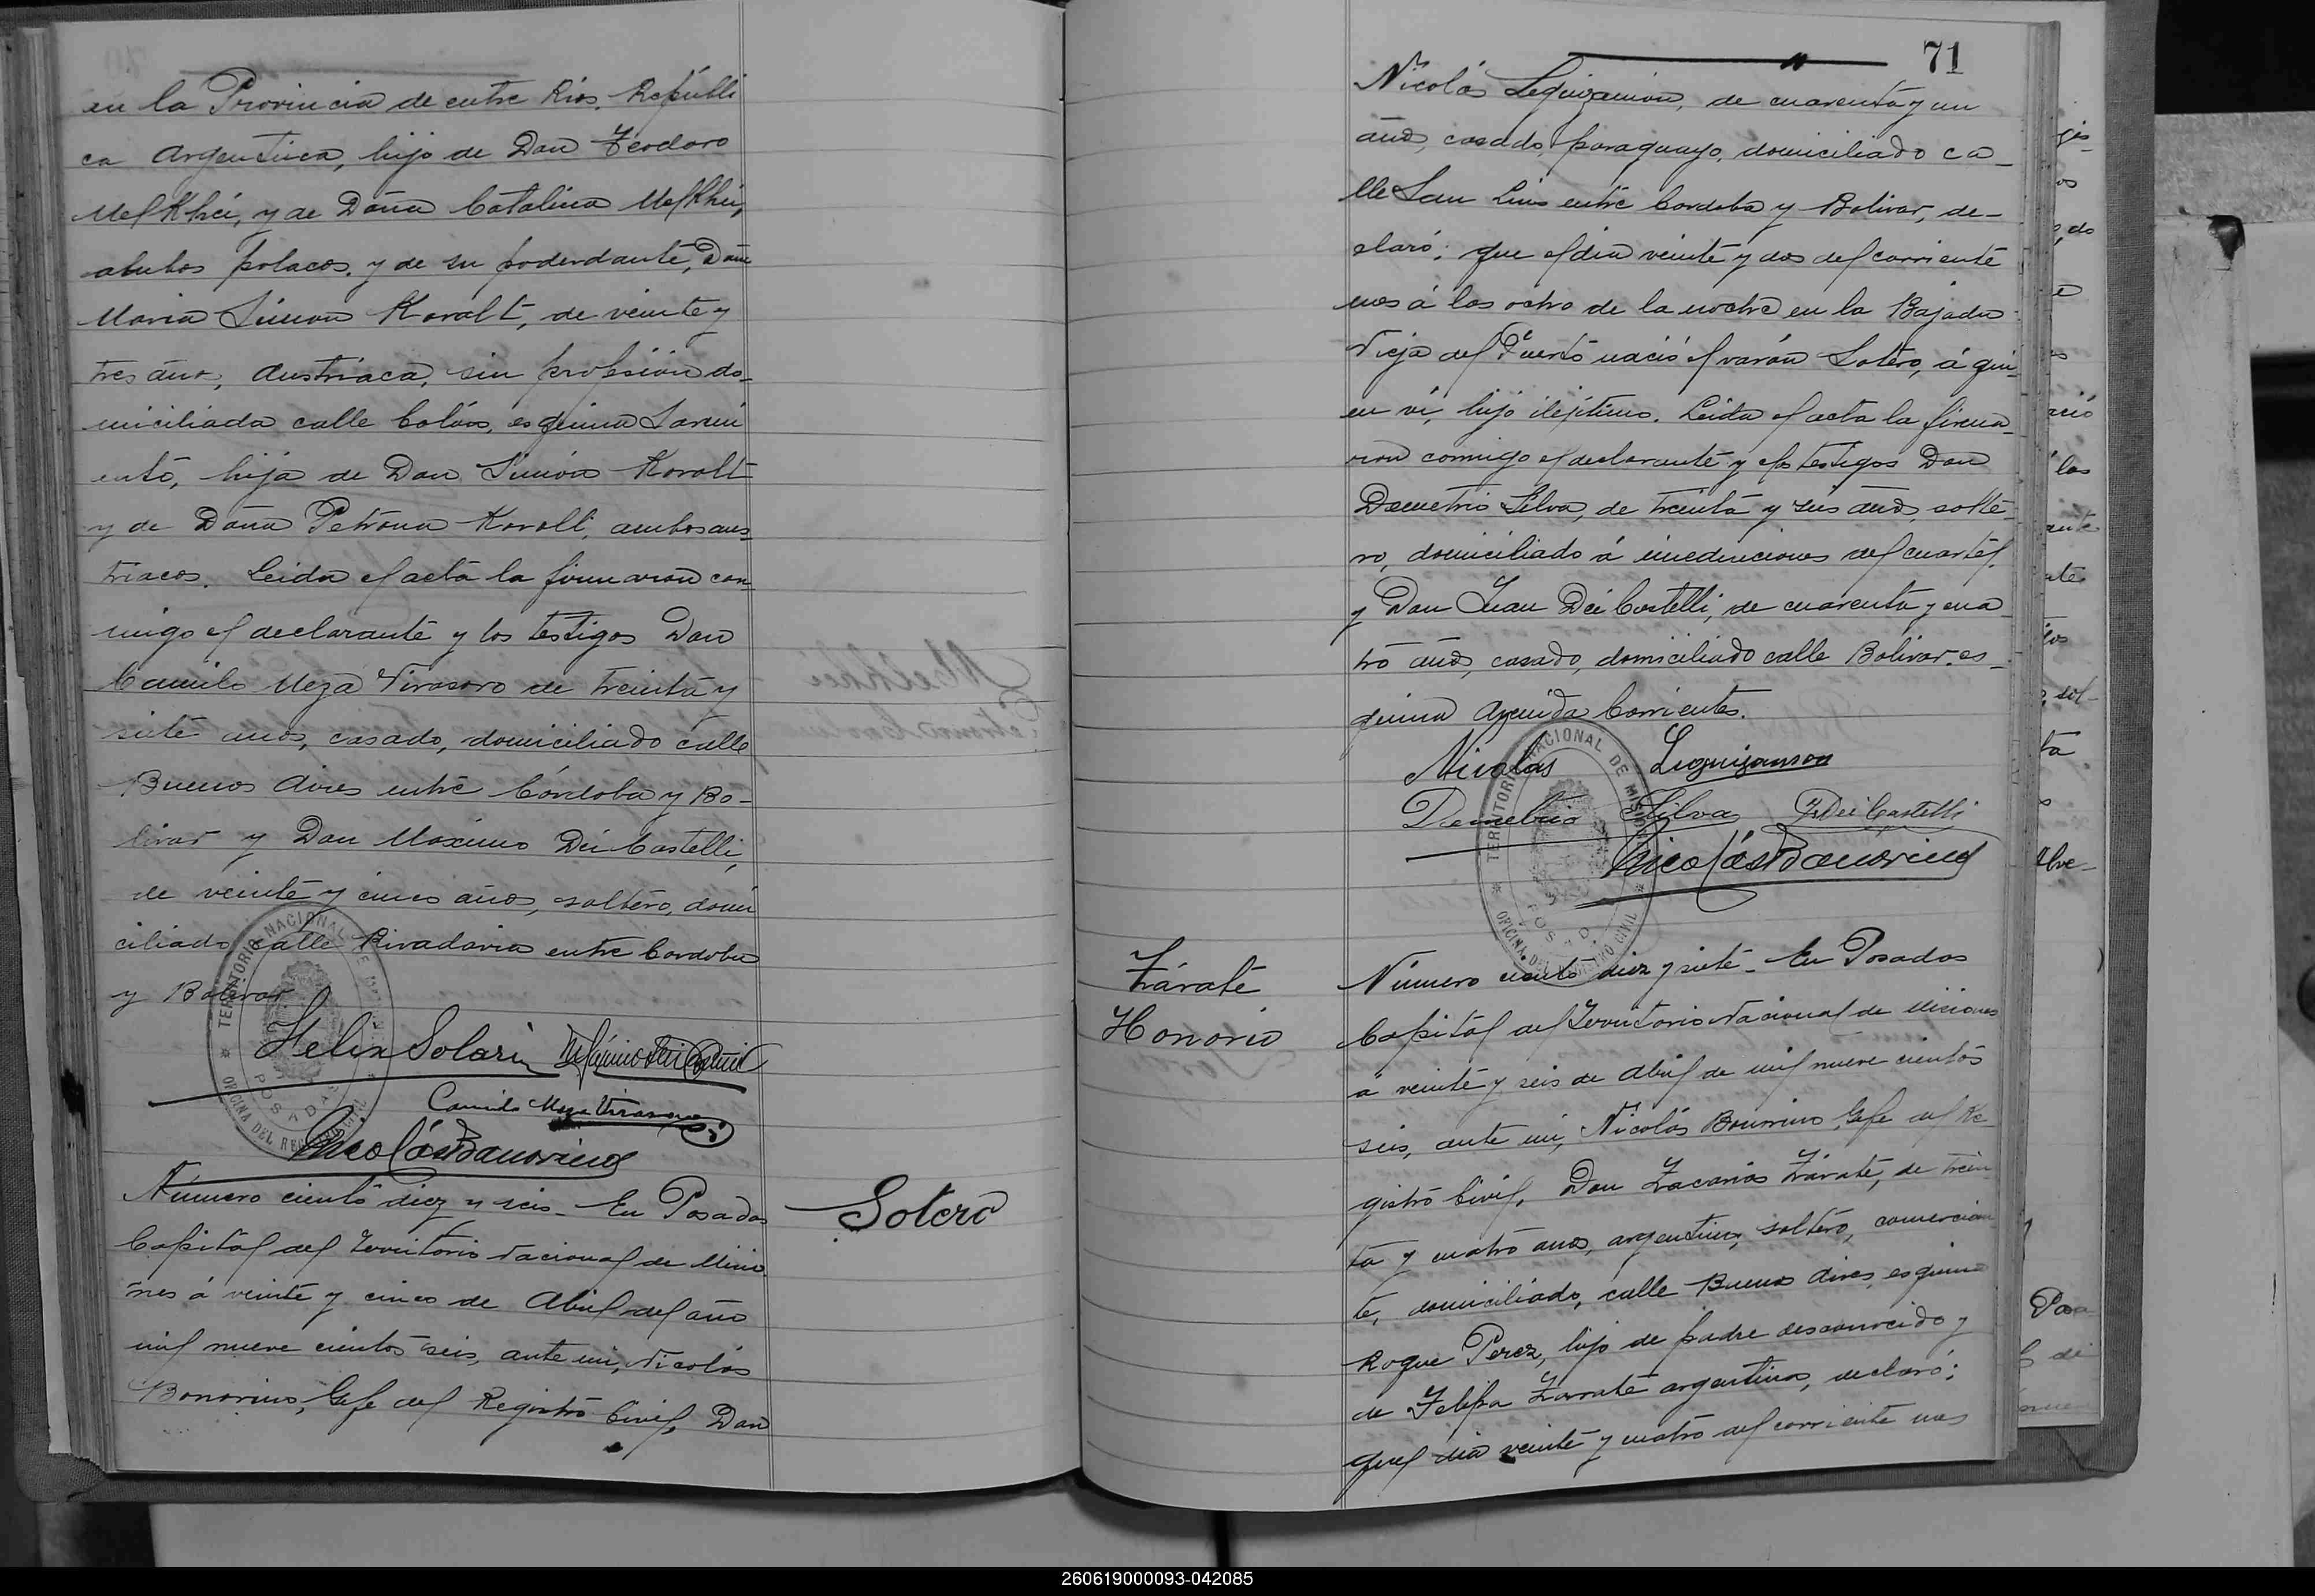 en la Provincia de entre Rios. Repúbli
ca Argentina, hijo de Don Teodoro
Melkhei, y de Doña Catalina Melkhei,
ambos polacos. y de su poderdante, Doña
Maria Simon Koralt, de veinte y
tres años, Austriaca, sin profesion do-
miciliada calle Colón, esquina Sarmi
ento, hija de Don Simón Koralt
y de Doña Petrona Koralt, ambos aus
triacos. Leida el acta la firmaron con
migo el declarante y los testigos Don
Camilo Meza Virasoro de treinta y
siete años, casado, domiciliado calle
Buenos Aires entre Córdoba y Bo-
livar y Don Maximo Dei Castelli,
de veinte y cinco años, soltero, domi
ciliado calle Rivadavia entre Cordoba
y Bolivar.
TERRITORIO NACIONAL DE MISIONES
POSADAS
OFICINA DEL REGISTRO CIVIL
Felix Solari Máximo Dei Castelli
Camilo Meza Virasoro
Nicolás Bonorino
Sotero
Número ciento diez y seis - En Posadas
Capital del Territorio Nacional de Misio
nes á veinte y cinco de Abril del año
mil nueve cientos seis, ante mi, Nicolás
Bonorino, Gefe del Registro Civil, Don
71
Nicolás Leguizamon, de cuarenta y un
años, casado, paraguayo, domiciliado ca-
lle San Luis entre Cordoba y Bolivar, de-
claró: que el dia veinte y dos del corriente
mes á las ocho de la noche en la Bajada
Vieja del Puerto nació el varón Sotero, á qui
en ví, hijo ilejitimo. Leida el acta la firma-
ron conmigo el declarante y los testigos Don
Demetrio Silva, de treinta y seis años, solte-
ro, domiciliado á inmediaciones del cuartel,
y Don Juan Dei Castelli, de cuarenta y cua
tro años, casado, domiciliado calle Bolivar, es-
quina Avenida Corrientes.
Nicolas Leguizamon
Demetrio Silva J. Dei Castelli
Nicolás Bonorino
TERRITORIO NACIONAL DE MISIONES
POSADAS
OFICINA DEL REGISTRO CIVIL
Zárate
Honorio
Número ciento diez y siete - En Posadas
Capital del Territorio Nacional de Misiones
a veinte y seis de Abril de mil nueve cientos
seis, ante mi, Nicolás Bonorino, Gefe del Re-
gistro Civil, Don Zacarias Zárate, de trein
ta y cuatro años, argentino, soltero, comercian
te, domiciliado, calle Buenos Aires, esquina
Roque Perez, hijo de padre desconocido y
de Felipa Zarrate argentinos, declaró:
quel dia veinte y cuatro del corriente mes
260619000093-042085